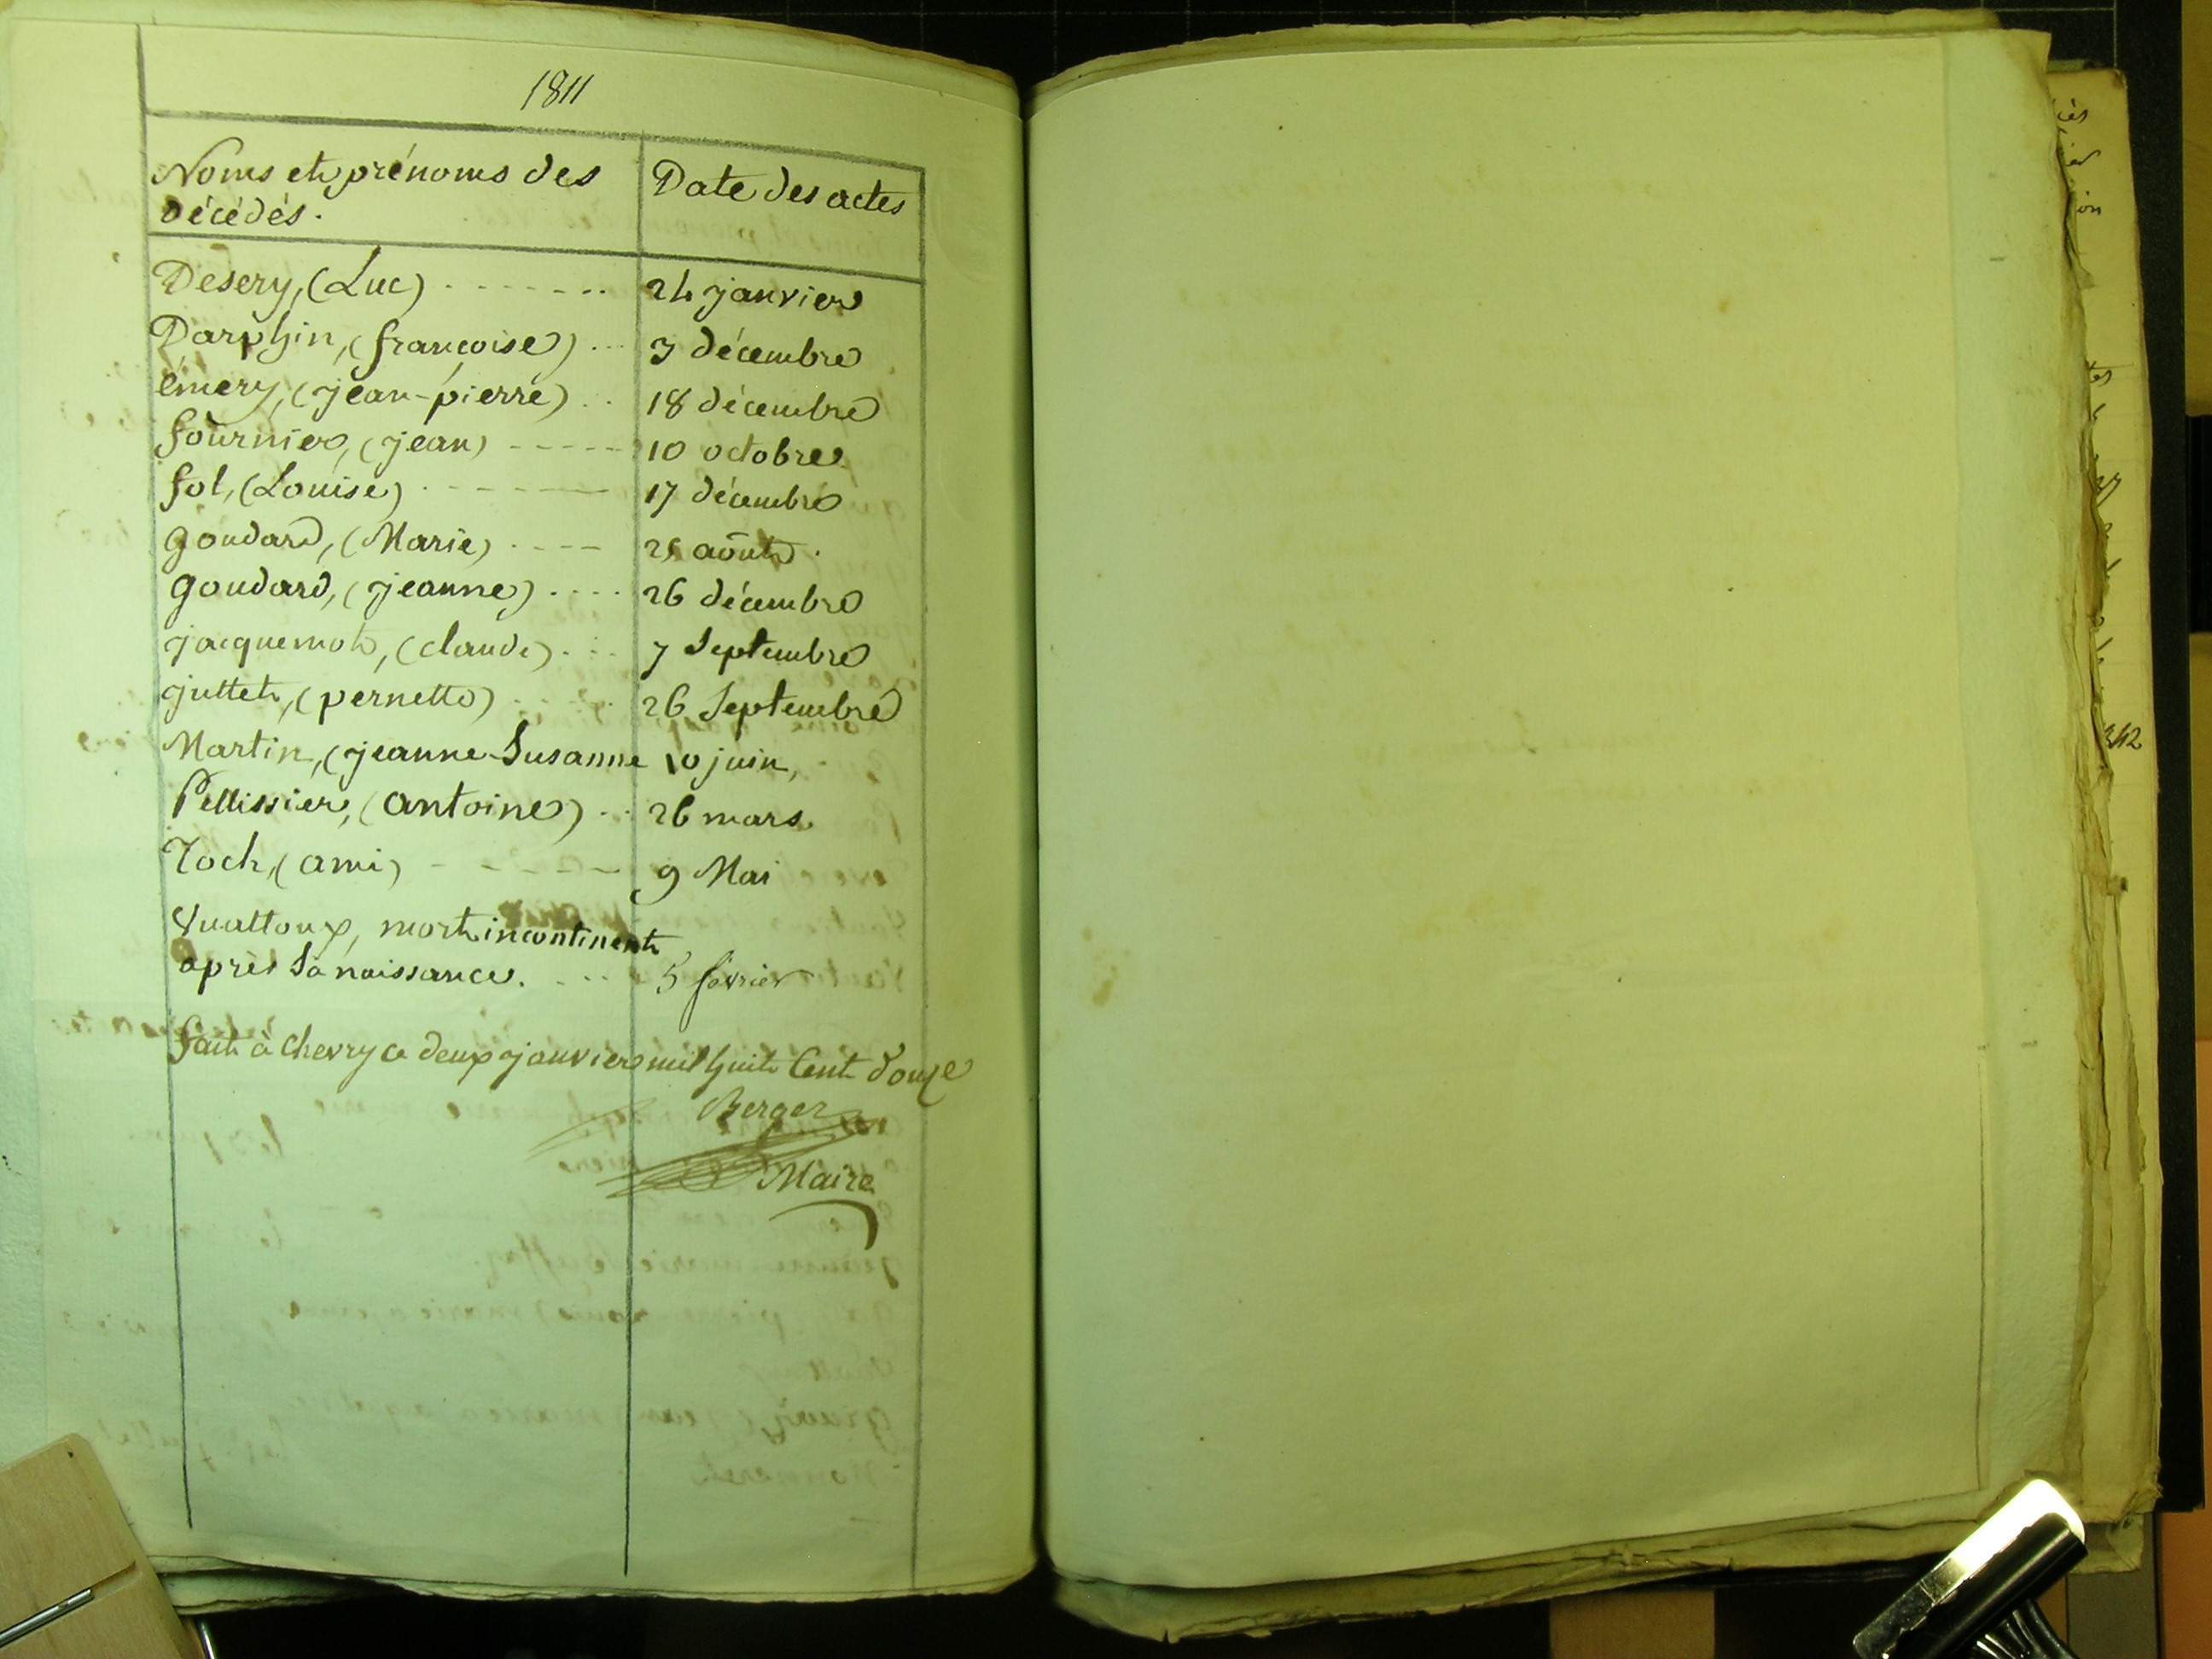 1811
Noms et prénoms des
décédés.
Date des actes
Desery, (Luc) 24 janvier
Darphin, (françoise) 3 décembre
émery, (jean-pierre) 18 décembre
fournier, (jean) 10 octobre
fol, (Louise) 17 décembre
goudard, (Marie) 25 août
goudard, (jeanne) 26 décembre
jacquemot, (claude) 7 Septembre
juttet, (pernette) 26 Septembre
Martin, (jeanne-Susanne 10 juin,
Pellissier, (antoine) 26 mars
Roch, (ami) 9 Mai
Vuattoux, mort incontinent
après Sa naissance. 5 février
fait à chevry ce deux janvier mil huit Cent douze
Berger
Maire